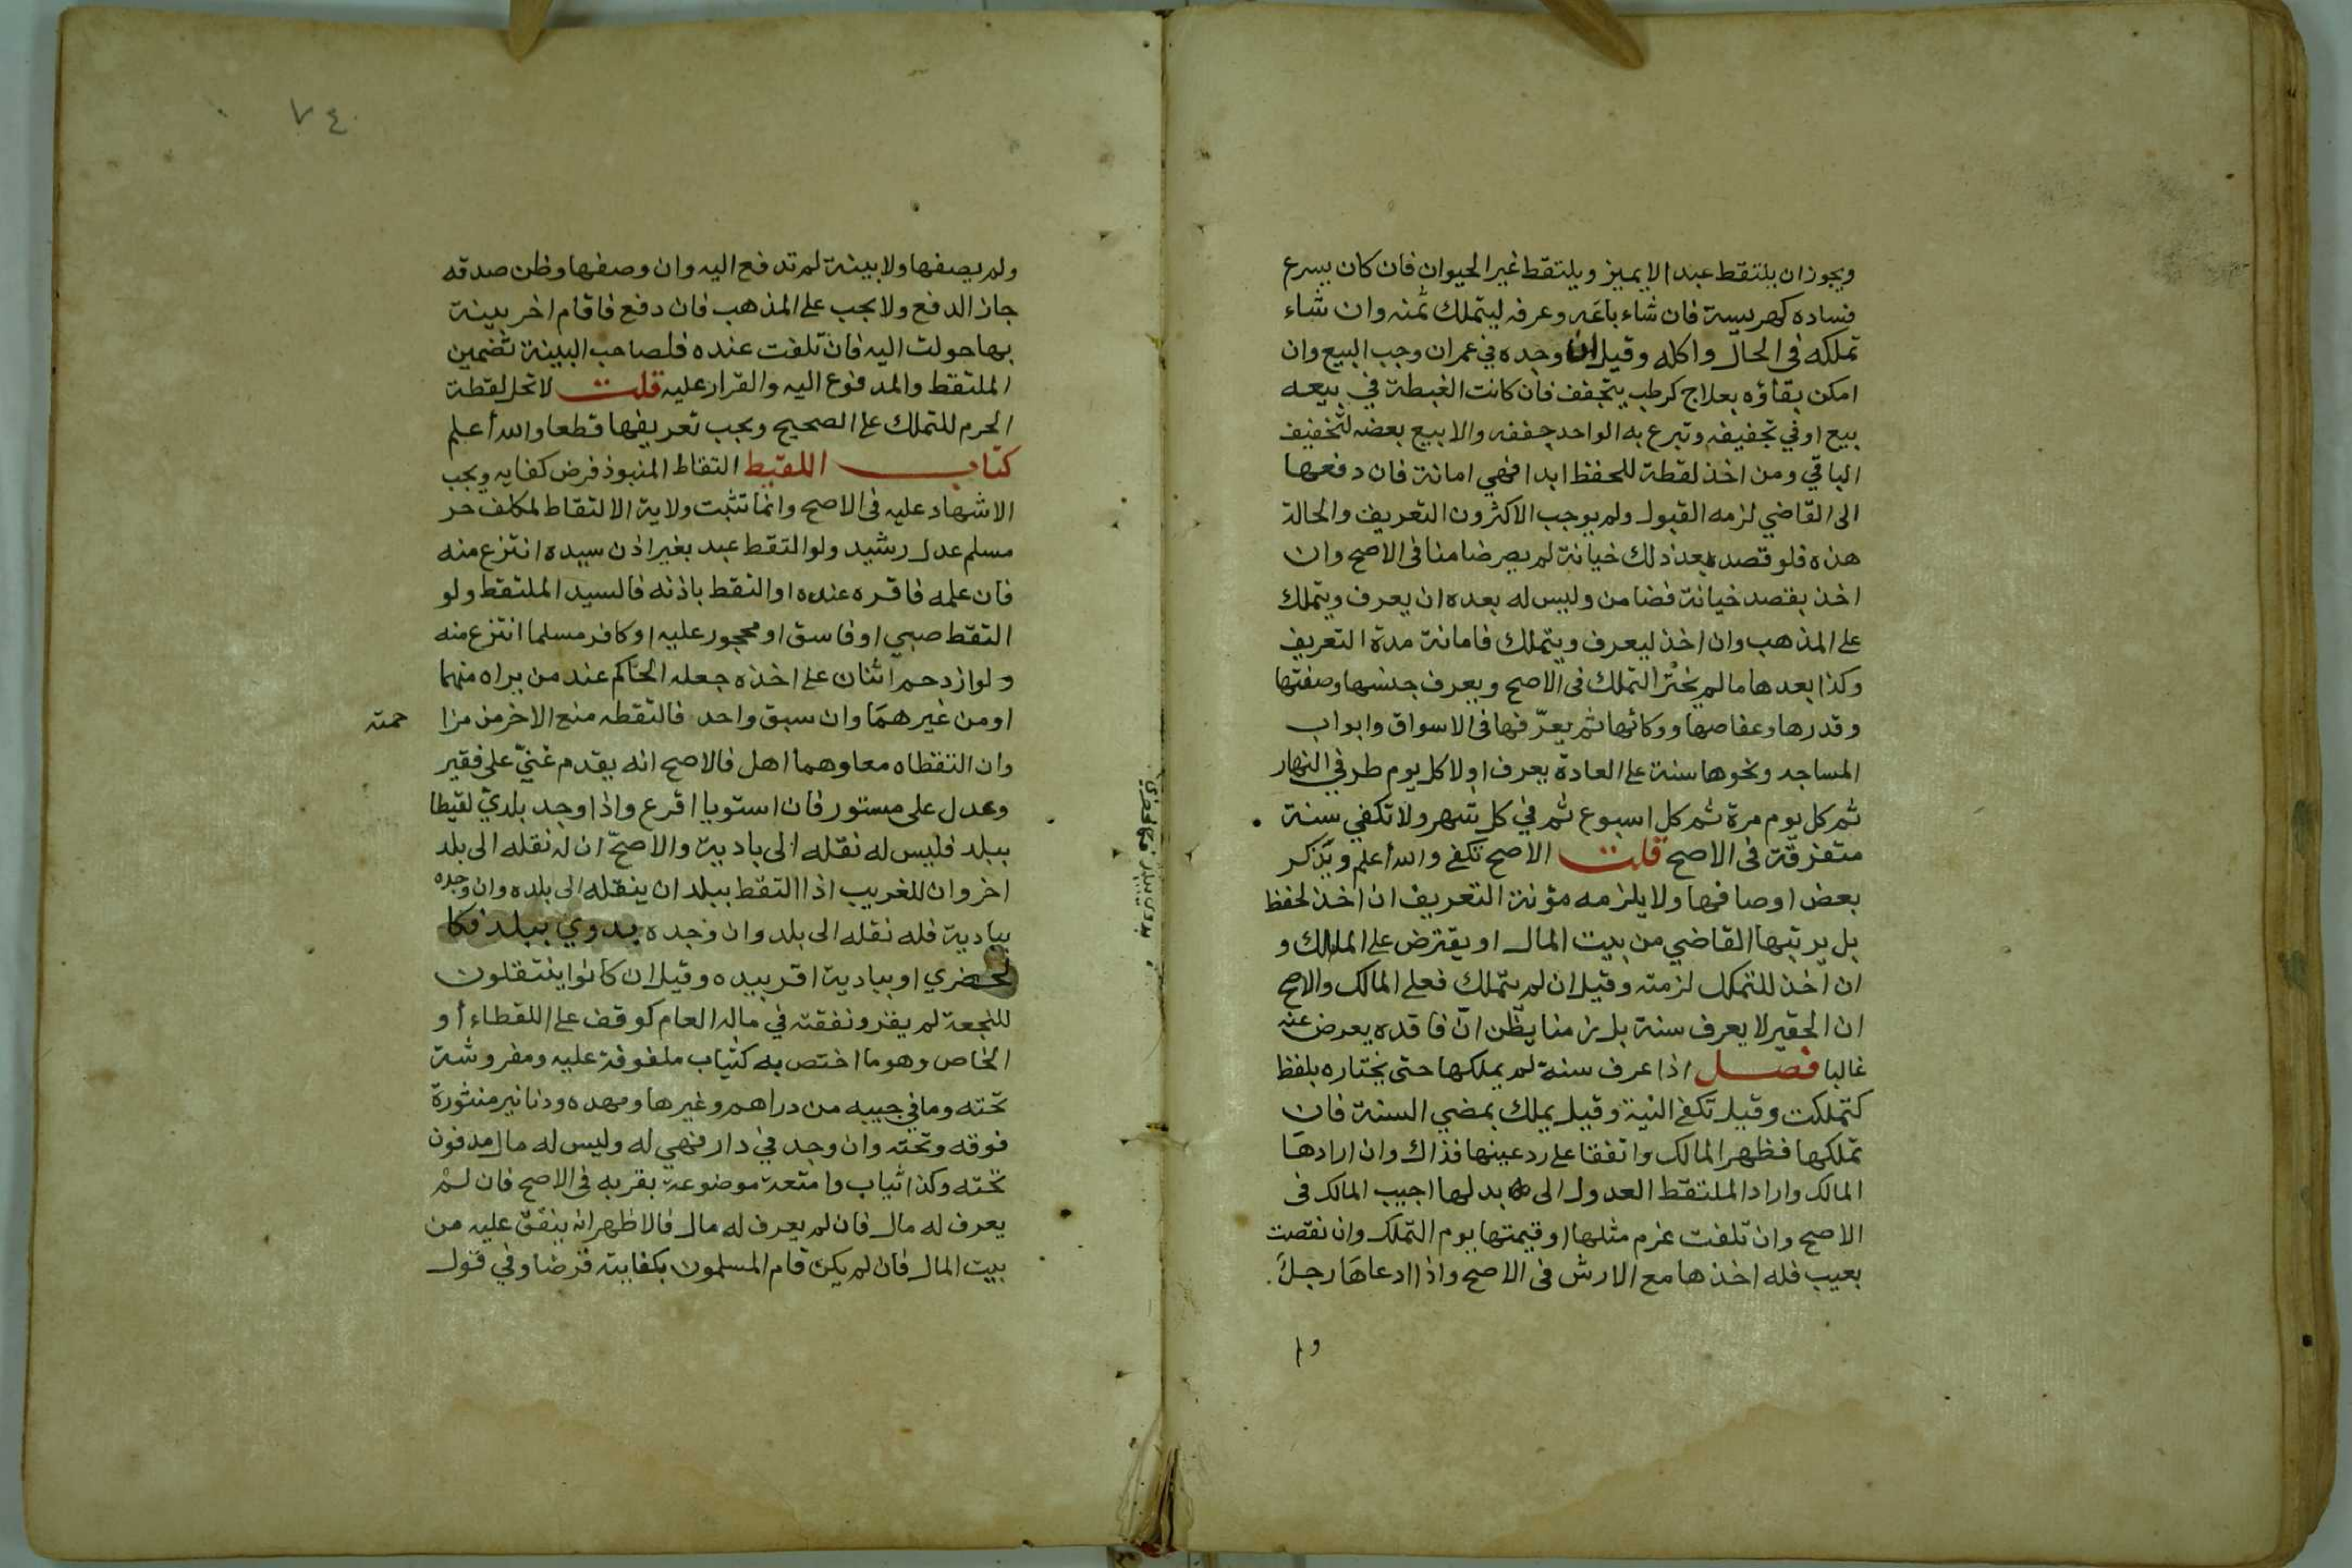 ويجوز ان يلتقط عبدا لا يميز ويلتقط غير الحيوان فان كان يسرع
فساده كهريسة فان شاء باعه وعرفه ليتملك ثمنه وان شاء
تملكه في الحال واكله وقيل ان وجده في عمران وجب البيع وان
امكن بقاؤه بعلاج كرطب يتجفف فان كانت الغبطة في بيعه
بيع او في تجفيفه وتبرع به الواحد جففه والا بيع بعضه لتخفيف
الباقي ومن اخذ لقطة للحفظ ابدا فهي امانة فان دفعها
الى القاضي لزمه القبول ولم يوجب الاكثرون التعريف والحالة
هذه فلو قصد بعد ذلك خيانة لم يصر ضامنا في الاصح وان
اخذ بقصد خيانة فضامن وليس له بعده ان يعرف ويتملك
على المذهب وان اخذ ليعرف ويتملك فامانة مدة التعريف
وكذا بعدها ما لم يختر التملك في الاصح ويعرف جنسها وصفتها
وقدرها وعفاصها ووكائها ثم يعرّفها في الاسواق وابواب
المساجد ونحوها سنة على العادة يعرف اولا كل يوم طرفي النهار
ثم كل يوم مرة ثم كل اسبوع ثم في كل شهر ولا تكفي سنة
متفرقة في الاصح قلت الاصح تكفي والله أعلم ويذكر
بعض اوصافها ولا يلزمه مؤنة التعريف ان اخذ لحفظ
بل يرتبها القاضي من بيت المال او يقترض على المالك و
ان اخذ للتملك لزمته وقيل ان لم يتملك فعلى المالك والاصح
ان الحقير لا يعرف سنة بل زمنا يظن انّ فاقده يعرض عنه
غالبا فصل اذا عرف سنة لم يملكها حتى يختاره بلفظ
كتملكت وقيل تكفي النية وقيل يملك بمضي السنة فان
تملكها فظهر المالك واتفقا على رد عينها فذاك وان ارادها
المالك واراد الملتقط العدول الى بدلها اجيب المالك في
الاصح وان تلفت غرم مثلها او قيمتها يوم التملك وان نقصت
بعيب فله اخذها مع الارش في الاصح واذا ادعاها رجل
ولم
٧٤
ولم يصفها ولا بينة لم تدفع اليه وان وصفها وظن صدقه
جاز الدفع ولا يجب على المذهب فان دفع فاقام اخر بينة
بها حولت اليه فان تلفت عنده فلصاحب البينة تضمين
الملتقط والمدفوع اليه والقرار عليه قلت لا تحل لقطة
الحرم للتملك على الصحيح ويجب تعريفها قطعا والله أعلم
كتاب اللقيط التقاط المنبوذ فرض كفايه ويجب
الاشهاد عليه في الاصح وانما تثبت ولاية الالتقاط لمكلف حر
مسلم عدل رشيد ولو التقط عبد بغير اذن سيده انتزع منه
فان علمه فاقره عنده او التقط باذنه فالسيد الملتقط ولو
التقط صبي او فاسق او محجور عليه او كافر مسلما انتزع منه
ولو ازدحم اثنان على اخذه جعله الحاكم عند من يراه منهما
او من غيرهما وان سبق واحد فالتقطه منع الاخر من مزا
حمته
وان التقطاه معا وهما أهل فالاصح انه يقدم غنيّ على فقير
وعدل على مستور فان استويا اقرع واذا وجد بلديّ لقيطا
ببلد فليس له نقله الى بادية والاصحّ ان له نقله الى بلد
اخر وان للغريب اذا التقط ببلد ان ينقله الى بلده وان وجده
ببادية فله نقله الى بلد وان وجده بدوي ببلد فكا
لحضري او ببادية اقر بيده وقيل ان كانوا ينتقلون
للنجعة لم يقر ونفقته في ماله العام كوقف على اللقطاء أو
الخاص وهو ما اختص به كثياب ملفوفة عليه ومفروشة
تحته وما في جيبه من دراهم وغيرها ومهده ودنانير منثورة
فوقه وتحته وان وجد في دار فهي له وليس له مال مدفون
تحته وكذا ثياب وامتعة موضوعة بقربه في الاصح فان لم
يعرف له مال فان لم يعرف له مال فالاظهر انه ينفق عليه من
بيت المال فان لم يكن قام المسلمون بكفايته قرضا وفي قول
بدوي ببلد فكالحضري